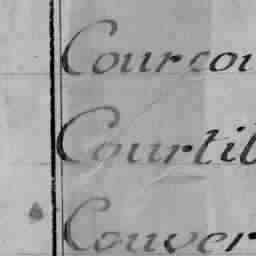 Courcou
Courtil
Couver